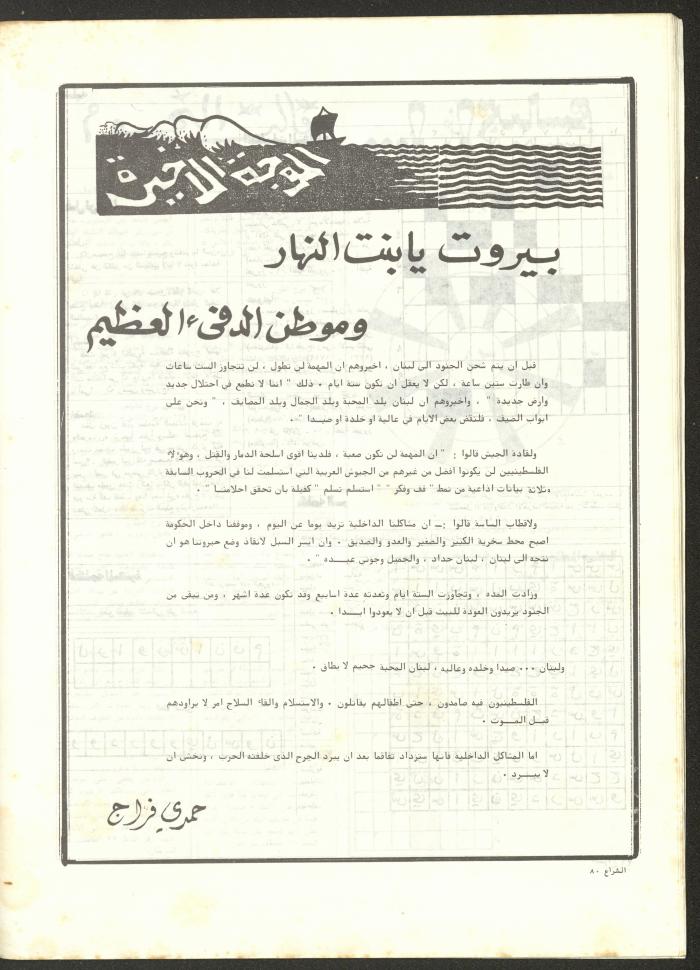 الموجة الاخيرة
بيروت يا بنت النهار
وموطن الدفىء العظيم
قبل ان يتم شحن الجنود الى لبنان ، اخبروهم ان المهمة لن تطول ، لن تتجاوز الست ساعات
وان طارت ستين ساعة ، لكن لا يعقل ان تكون ستة ايام ٠ ذلك " اننا لا نطمع في احتلال جديد
وارض جديدة " ، واخبروهم ان لبنان بلد المحبة وبلد الجمال وبلد المصايف ، " ونحن على
ابواب الصيف ، فلنقض بعض الايام في عالية او خلدة او صيدا " ٠
ولقادة الجيش قالوا : " ان المهمة لن تكون صعبة ، فلدينا اقوى اسلحة الدمار والقتل ، وهولاء
الفلسطينيين لن يكونوا افضل من غيرهم من الجيوش العربية التي استسلمت لنا في الحروب السابقة
وثلاثة بيانات اذاعية من نمط " قف وفكر " " استسلم تسلم " كفيلة بان تحقق احلامنا " ٠
ولاقطاب الساسة قالوا :ـ ان مشاكلنا الداخلية تزيد يوما عن اليوم ، وموقفنا داخل الحكومة
اصبح محط سخرية الكبير والصغير والعدو والصديق ٠ وان ايسر السبل لانقاذ وضع حيروتنا هو ان
نتجه الى لبنان ، لبنان حداد ، والجميل وجوني عبده " ٠
وزادت المدة ، وتجاوزت الستة ايام وتعدته عدة اسابيع وقد تكون عدة اشهر ، ومن تبقى من
الجنود يريدون العودة للبيت قبل ان لا يعودوا ابدا ٠
ولبنان ٠٠٠ صيدا وخلده وعالية ، لبنان المحبة جحيم لا يطاق ٠
الفلسطينيون فيه صامدون ، حتى اطفالهم يقاتلون ٠ والاستسلام والقاء السلاح امر لا يراودهم
قبل الموت ٠
اما المشاكل الداخلية فانها ستزداد تفاقما بعد ان يبرد الجرح الذي خلفته الحرب ، ونخشى ان
لا يبرد ٠
حمدي فراج
الشراع ٨٠